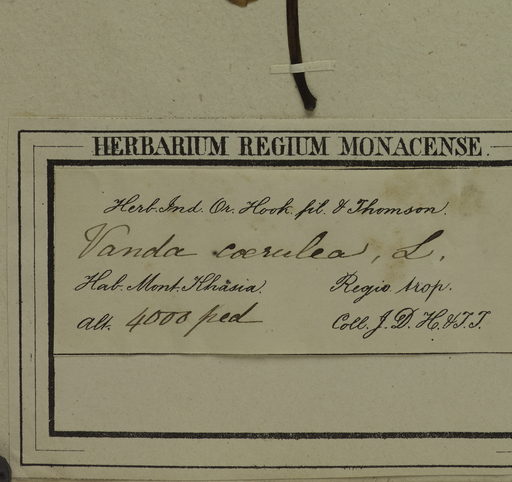 HERBARIUM REGIUM MONACENSE.
Herb. Ind. Or. Hook. fil. & Thomson.
Vanda cœrulea, L.
Hab. Mont. Khasia. Regio trop.
Alt. 4000 ped Coll. J. D. H. & T. T.